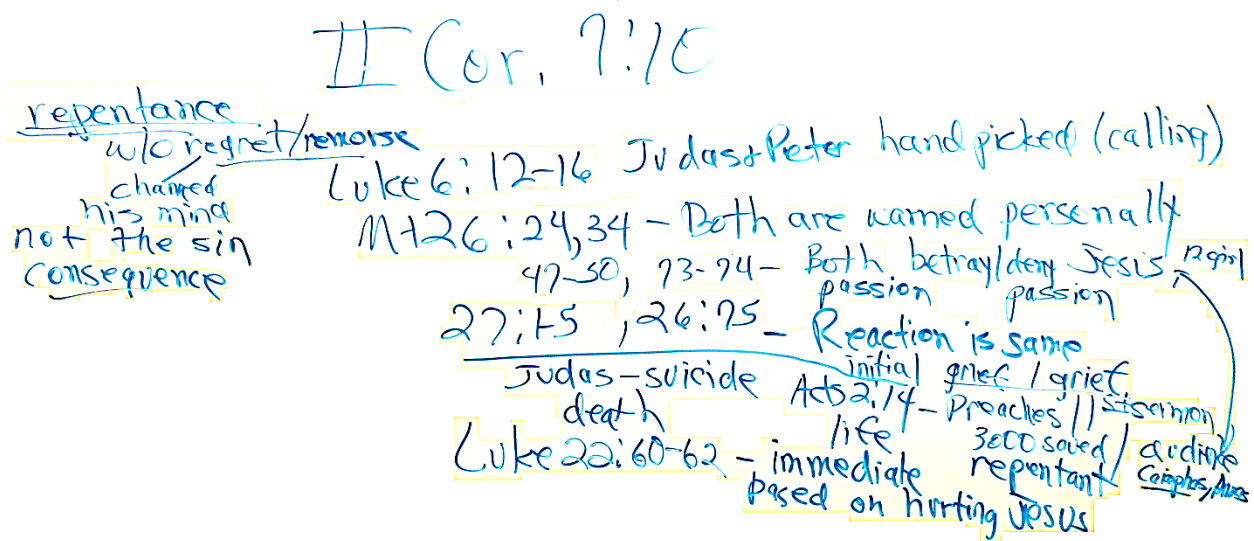 II Cor. 7:10
repentance
w/o regret/remorse
changed
his mind
not the sin
consequence
Luke 6:12-16 Judas & Peter handpicked (calling)
Mt 26:24,34 - Both are warned personally
47-50, 73-74 - Both betray/deny Jesus
passion passion
27:1-5, 26:75 - Reaction is same
initial grief / grief
Judas - suicide
death
Acts 2:14 - Preaches 1st sermon
life 3000 saved / audience
Caiaphas, Annas
Luke 22:60-62 - immediate repentant
based on hurting Jesus